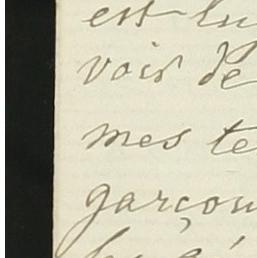 est lu
voir de
mes te
garçon